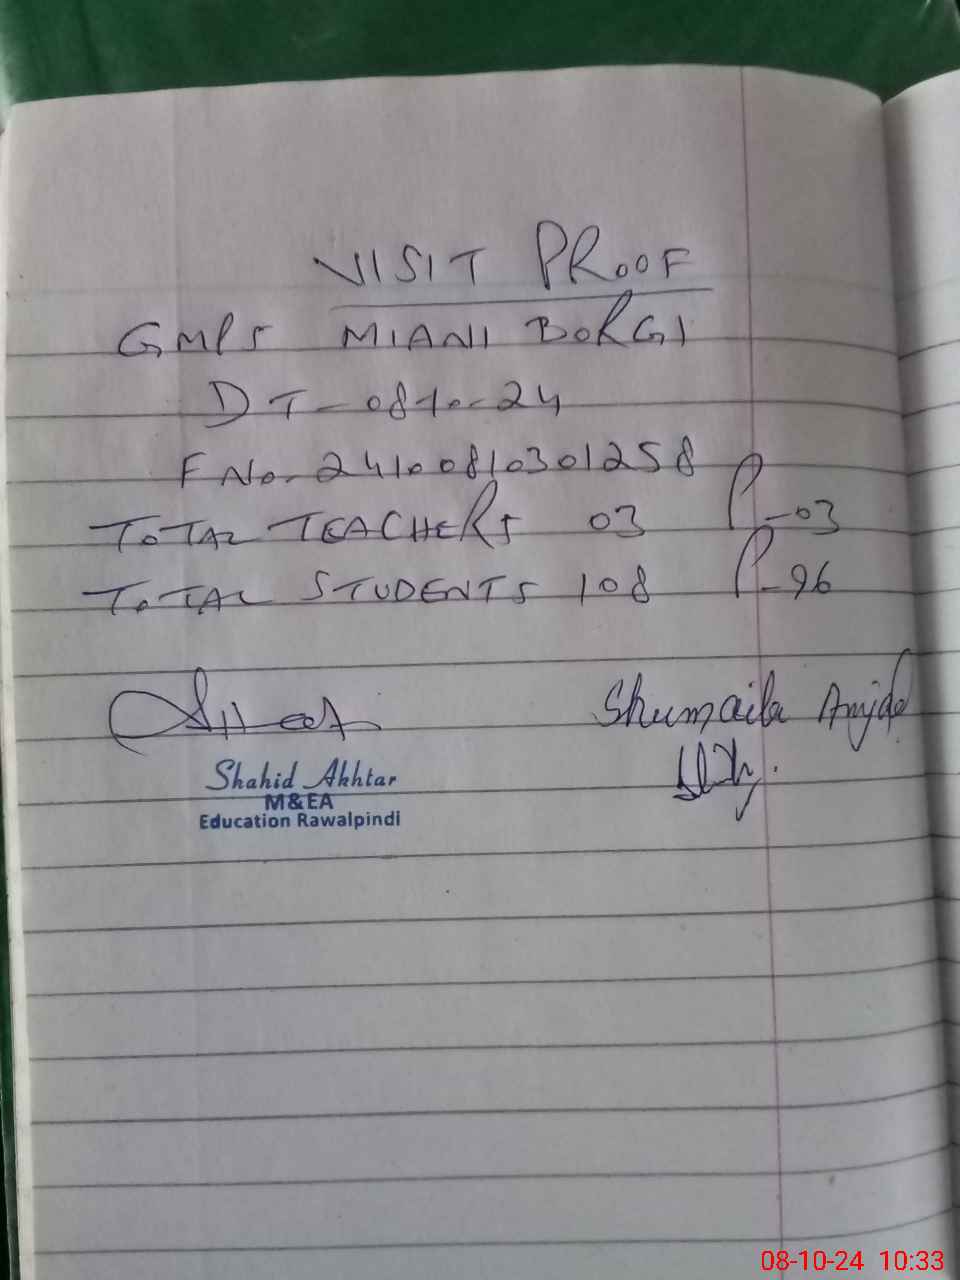 VISIT PROOF
GMPS MIANI BORGI
DT-08-10-24
F No. 24100810301258
TOTAL TEACHERS 03 P-03
TOTAL STUDENTS 108 P-96
Shumaila Amjad
Shahid Akhtar
M&EA
Education Rawalpindi
08-10-24 10:33